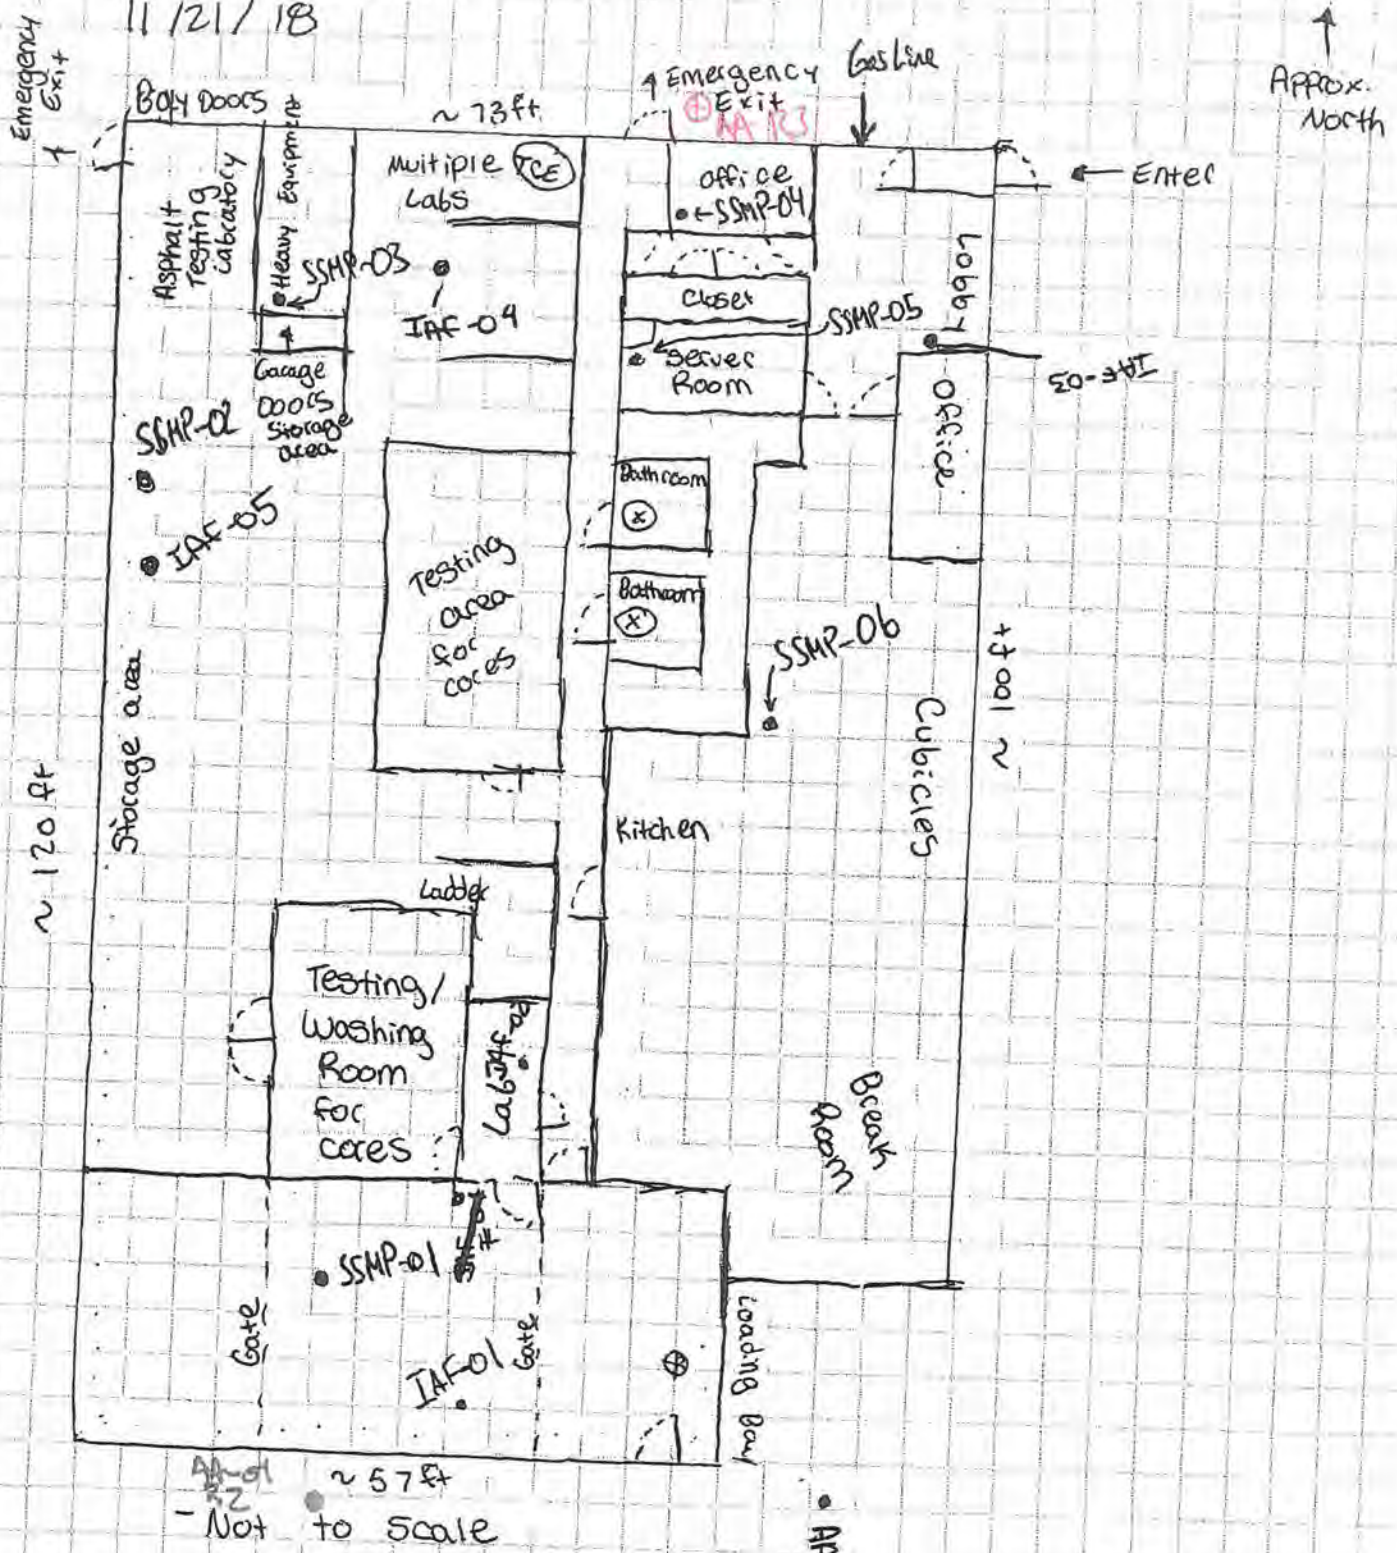 11/21/18
Emergency
Exit
Emergency
Exit
Gas Line
Approx.
North
Bay Doors
~ 73 ft
AA R3
Enter
Asphalt
Testing
Labratory
Heavy Equipment
Multiple
Labs
TCE
Office
SSMP-04
Lobby
SSMP-03
IAF-04
Closet
SSMP-05
Server
Room
IAF-03
Office
Garage
Doors
Storage
area
SSMP-02
IAF-05
Bathroom
Bathroom
Testing
area
for
cores
SSMP-06
~ 100 ft
Cubicles
Storage area
~ 120 ft
Kitchen
Ladder
Testing/
Washing
Room
for
cores
Lab
IAF-02
Break
Room
SSMP-01
Gate
Gate
IAF-01
Loading Bay
AA-01
R2
~ 57 ft
- Not to Scale